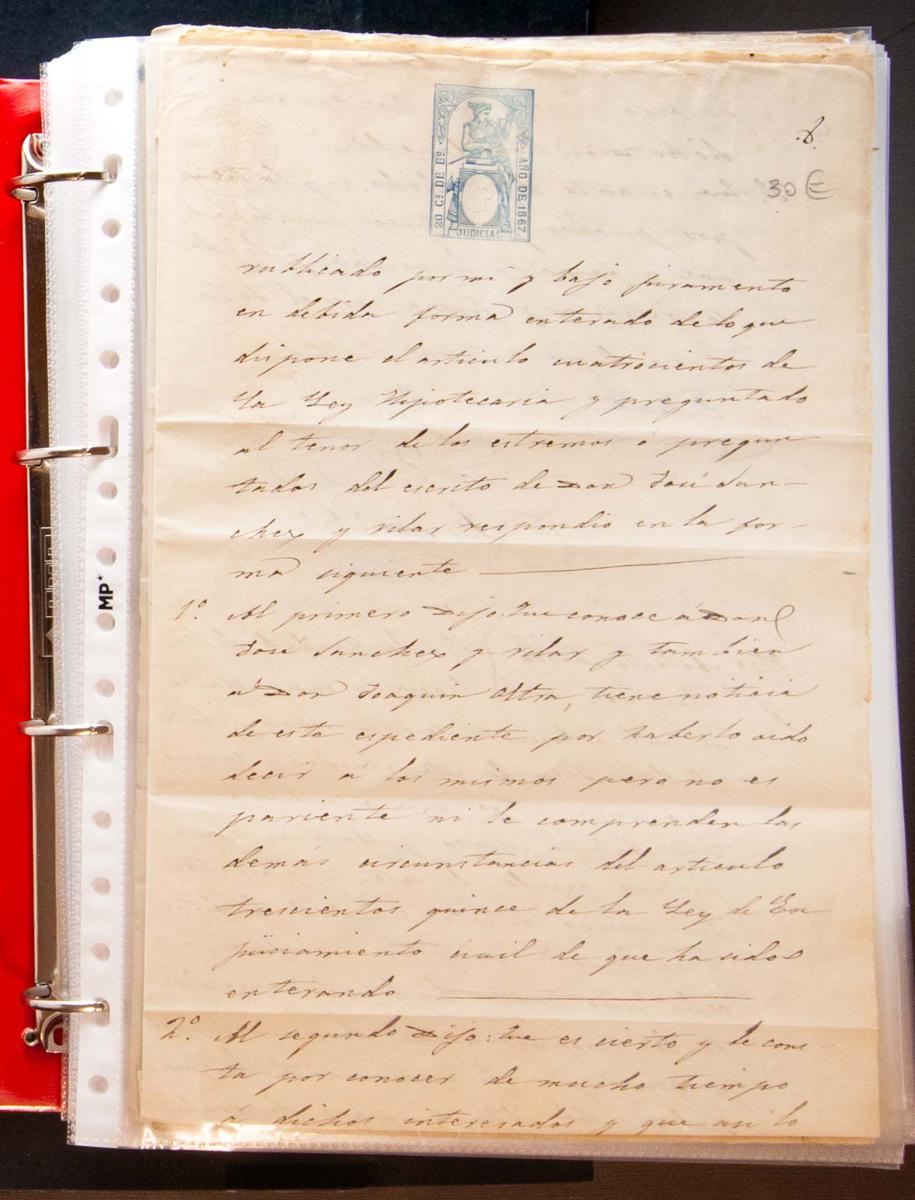 20 Cs. DE Eo.
AÑO DE 1867.
JUDICIAL
8.
30 €
MP*
rublicado por mi y bajo juramento
en debida forma enterado de lo que
dispone el articulo cuatrocientos de
la Ley Hipotecaria y preguntado
al tenor de los estremos ó pregun
tados del escrito de Don José San-
chez y Vilar respondio en la for-
ma siguiente
1º. Al primero Dijo: Que conoce á Don
José Sanchez y Vilar y tambien
á Don Joaquin Altra, tiene noticia
de este espediente por haberlo oido
decir á los mismos pero no es
pariente ni le comprenden las
demás circunstancias del articulo
trescientos quince de la Ley de En
juiciamiento civil de que ha sidos
enterando
2º. Al segundo Dijo: Que es cierto y le cons-
ta por conocer de mucho tiempo
á dichos interesados y que asi lo